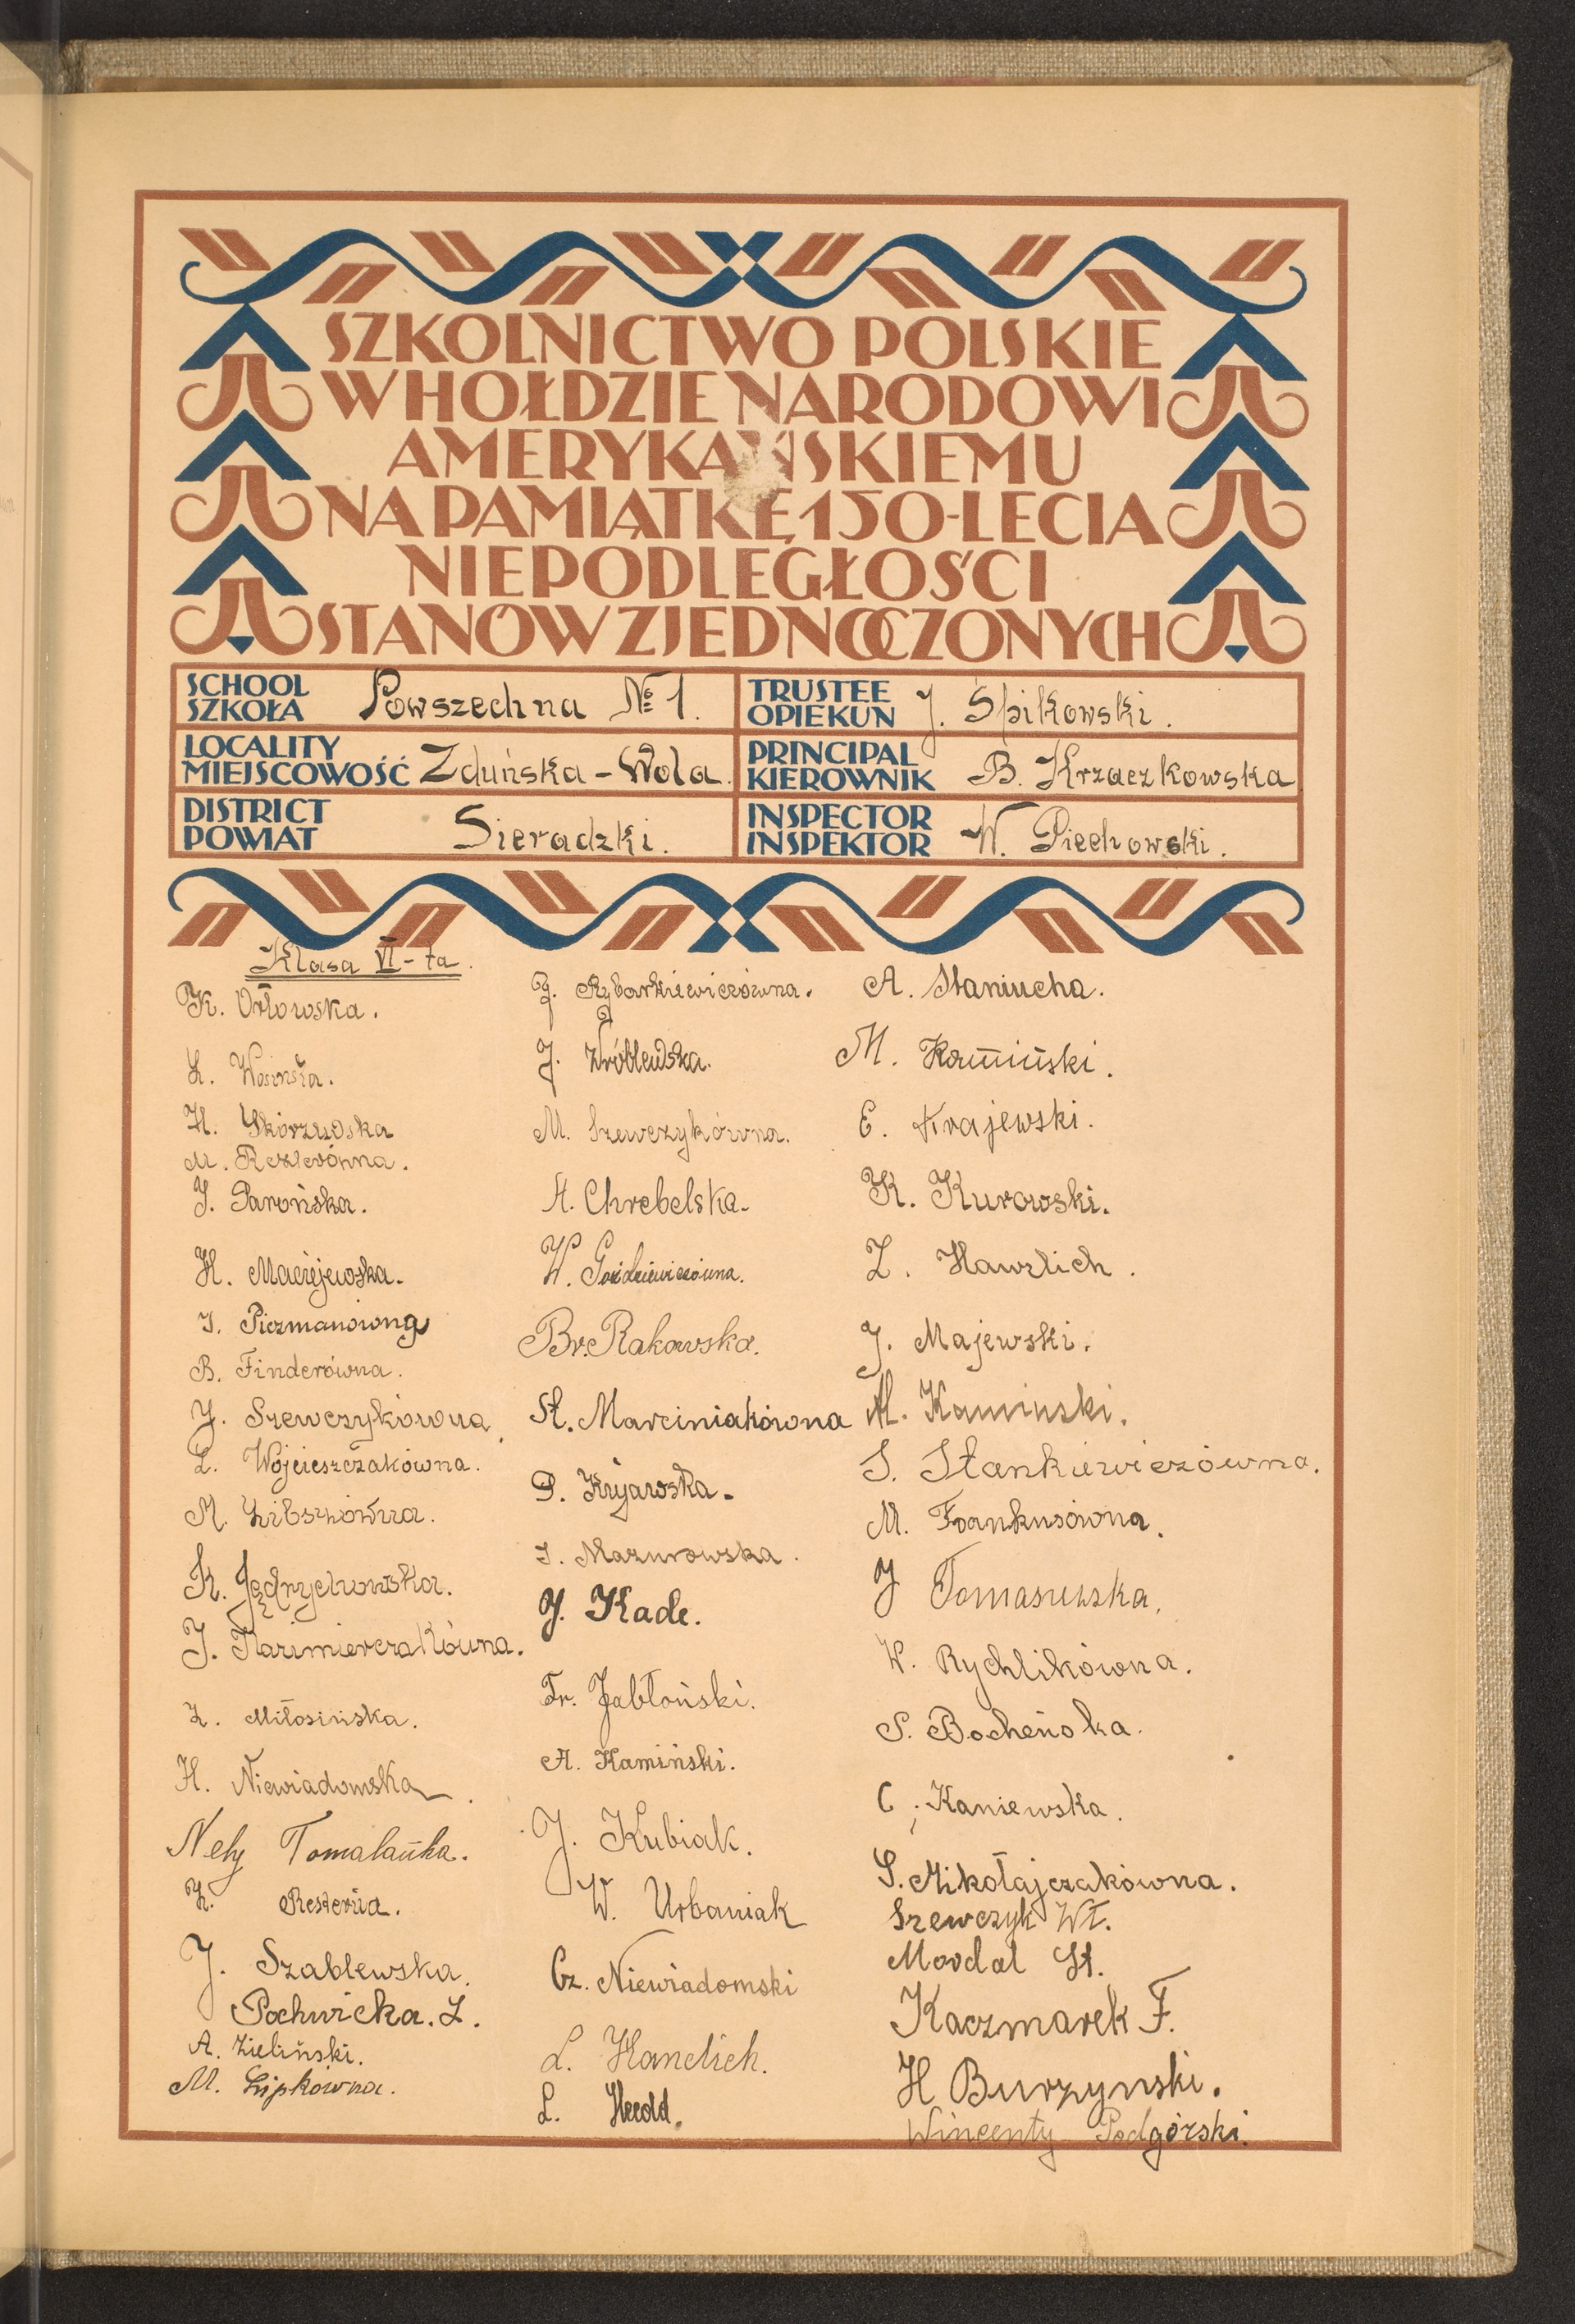 SZKOLNICTWO POLSKIE
W HOŁDZIE NARODOWI
AMERYKAŃSKIEMU
NA PAMIĄTKĘ 150-LECIA
NIEPODLEGŁOŚCI
STANÓW ZJEDNOCZONYCH
SCHOOL
SZKOŁA Powszechna № 1.
TRUSTEE
OPIEKUN J. Śpikowski.
LOCALITY
MIEJSCOWOŚĆ Zduńska-Wola.
PRINCIPAL
KIEROWNIK B. Krzaczkowska
DISTRICT
POWIAT Sieradzki.
INSPECTOR
INSPEKTOR W. Piechowski.
Klasa VI-ta.
K. Orłowska.
L. Wosińska.
H. Skórzewska
M. Rezlerówna.
J. Parońska.
H. Maciejewska.
J. Piezmanówna
B. Finderówna.
J. Szewczykówna.
L. Wojcieszczakówna.
M. Libsznówna.
K. Jędrychowska.
J. Kazimierczakówna.
Z. Miłosińska.
H. Niewiadomska.
Nely Tomalanka.
H.
J. Szablewska.
Pochwicka. L.
A. Zieliński.
M. Lipkówna.
J. Rybarkiewiczówna.
J. Wróblewska.
M. Szewczykówna.
A. Chrebelska.
W. Goździewiczówna.
Br. Rakowska.
St. Marciniakówna
D. Kryjawska.
J. Mazurowska.
J. Kade.
Fr. Jabłoński.
A. Kamiński.
J. Kubiak.
W. Urbaniak
Cz. Niewiadomski
L. Hanelich.
L. Herold.
A. Staniucha.
M. Kamiński.
E. Krajewski.
K. Kurowski.
Z. Hawrlich.
J. Majewski.
M. Kamiński.
S. Stankiewiczówna.
M. Frankusówna.
J Tomaszewska.
W. Rychlikówna.
S. Bocheńska.
C. Kaniewska.
S. Mikołajczakówna.
Szewczyk Wł.
Mordal St.
Kaczmarek F.
H Burzynski.
Wincenty Podgórski.